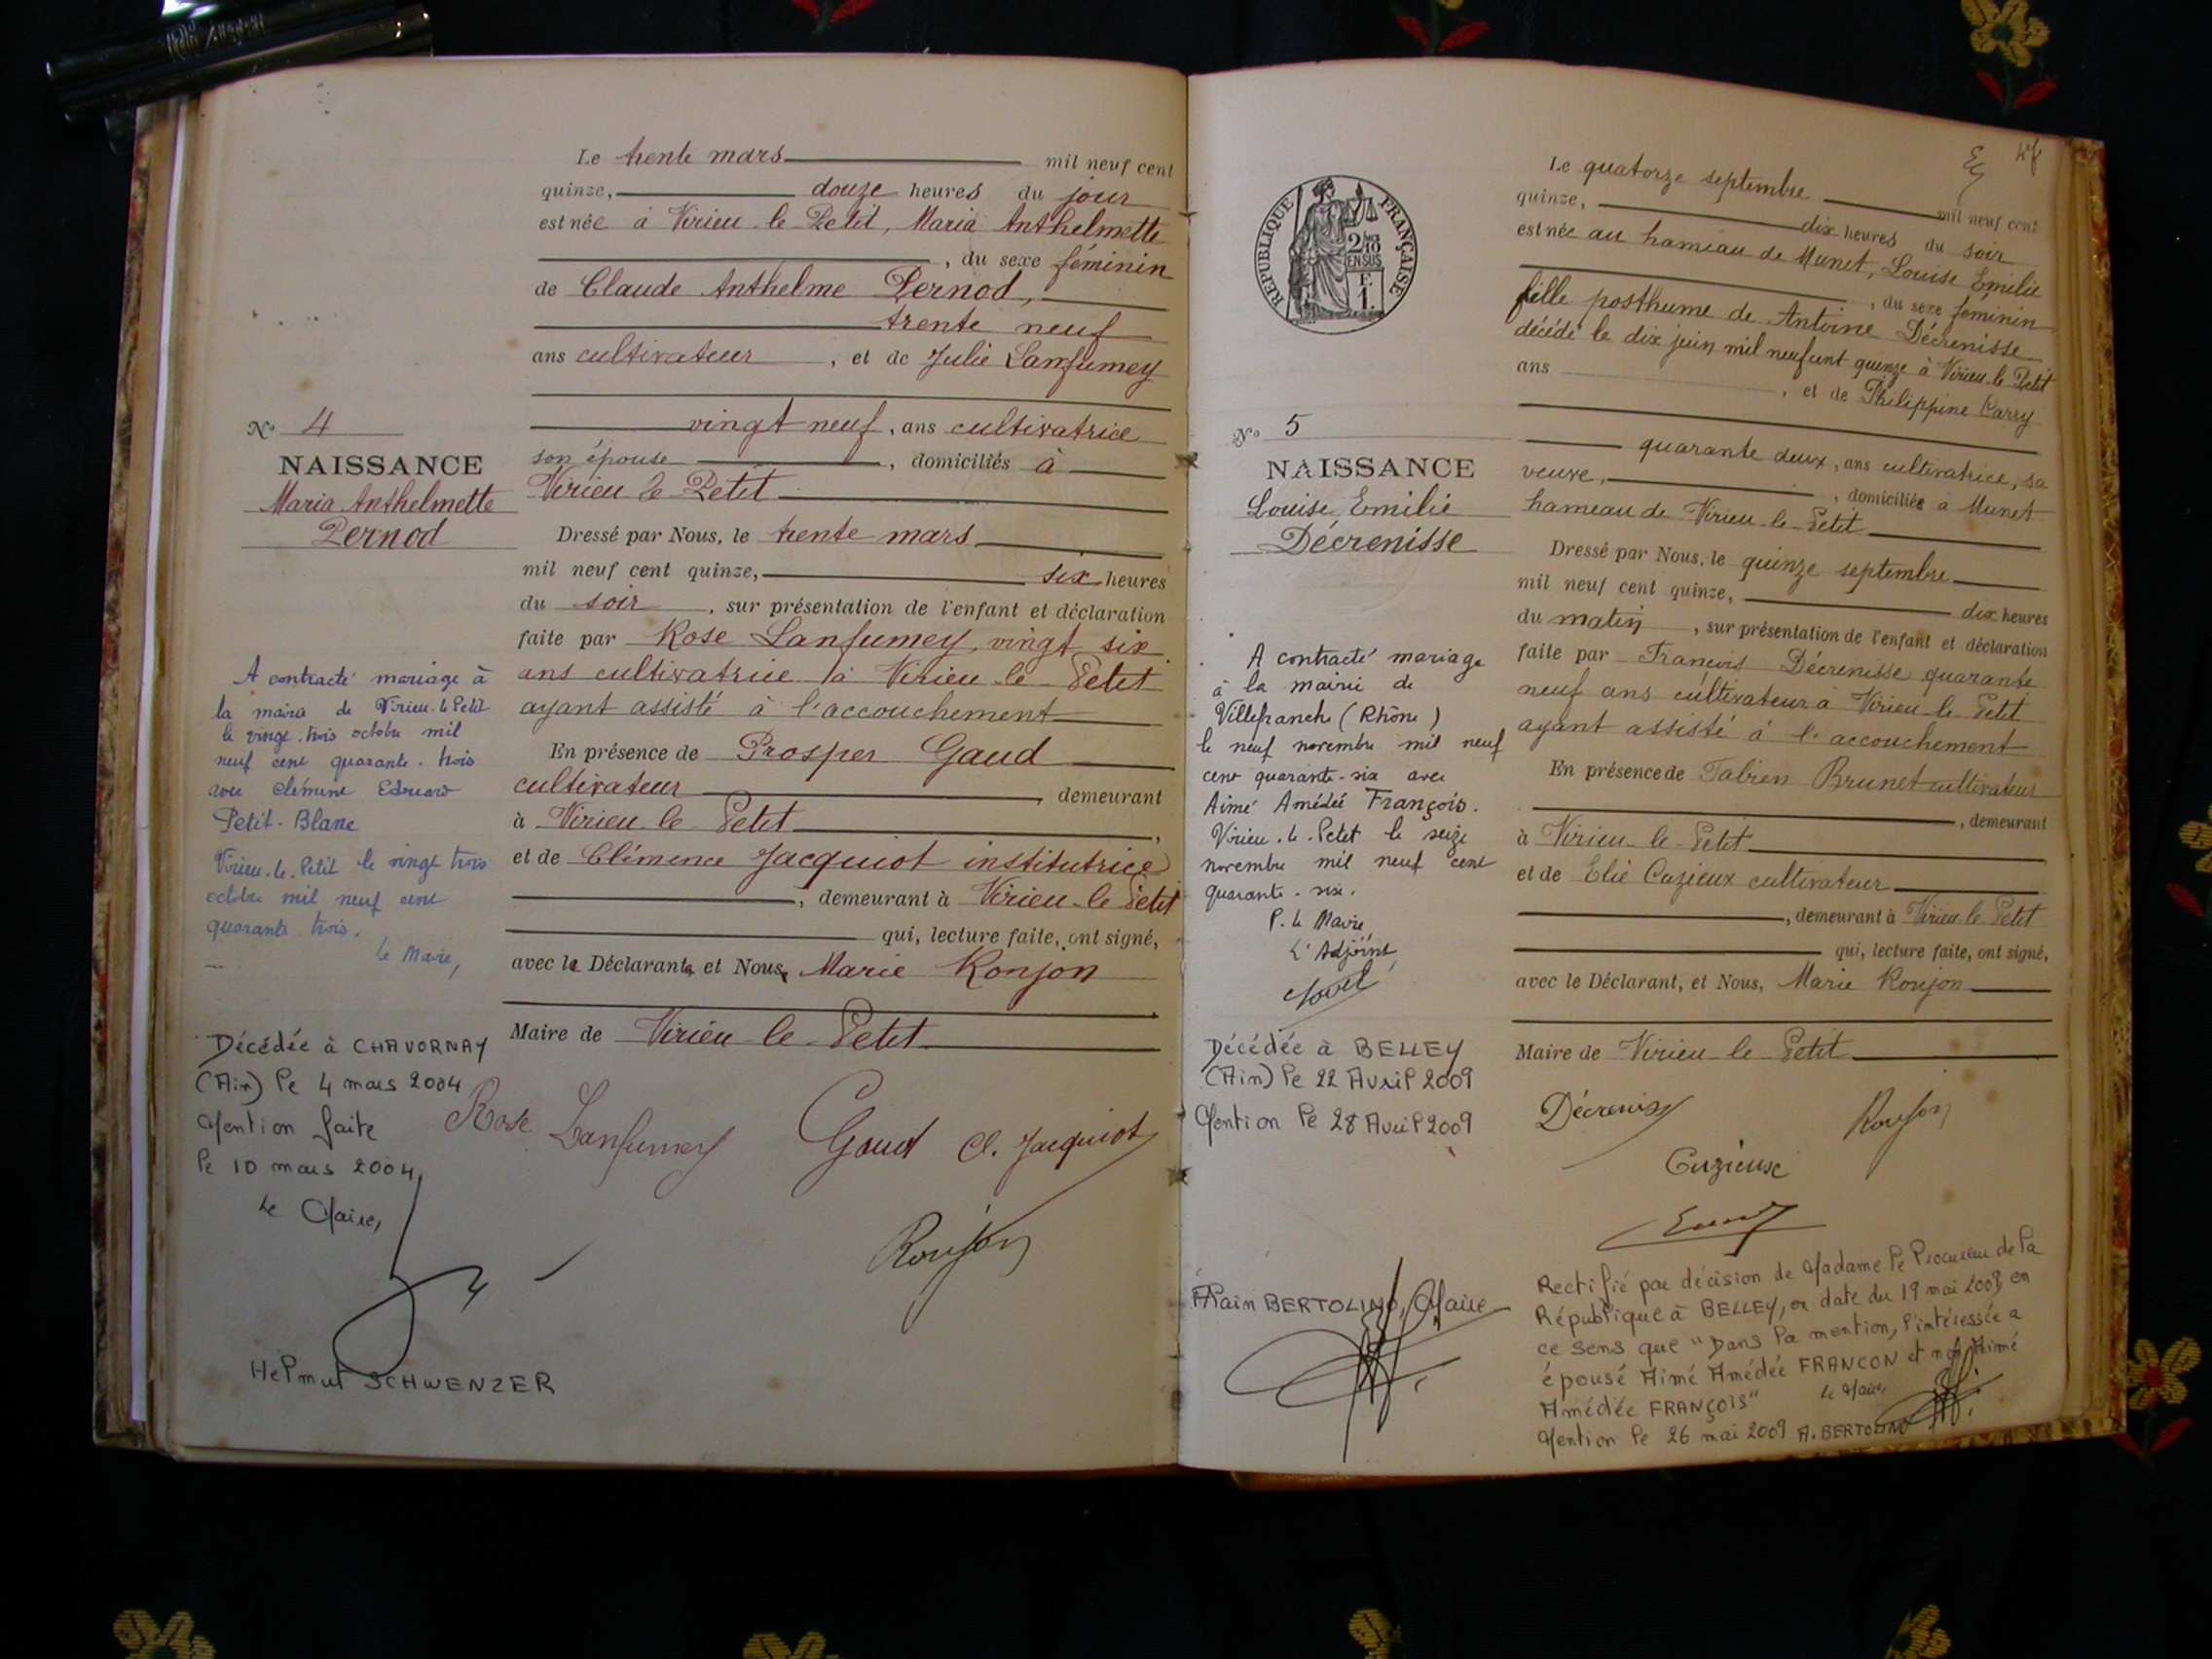 Le trente mars mil neuf cent
quinze, douze heures du jour
est née à Virieu-le-Petit, Maria Anthelmette
, du sexe féminin
de Claude Anthelme Pernod,
trente neuf
ans cultivateur , et de Julie Lanfumey
vingt neuf, ans cultivatrice
son épouse , domiciliés à
Virieu le Petit
N° 4
NAISSANCE
Maria Anthelmette
Pernod
Dressé par Nous, le trente mars
mil neuf cent quinze, six heures
du soir , sur présentation de l'enfant et déclaration
faite par Rose Lanfumey, vingt six
ans cultivatrice à Virieu-le-Petit
ayant assisté à l'accouchement
En présence de Prosper Gaud
cultivateur , demeurant
à Virieu-le-Petit ,
et de Clémence Jacquiot institutrice
, demeurant à Virieu-le-Petit
qui, lecture faite, ont signé,
avec la Déclarante et Nous, Marie Roujon
Maire de Virieu-le-Petit
A contracté mariage à
la mairie de Virieu-le-Petit
le vingt-trois octobre mil
neuf cent quarante-trois
avec Clément Edouard
Petit-Blanc
Virieu-le-Petit le vingt trois
octobre mil neuf cent
quarante trois.
Le Maire,
Décédée à CHAVORNAY
(Ain) le 4 mars 2004
Mention faite
le 10 mars 2004
Le Maire,
Helmut SCHWENZER
Rose Lanfumey Gaud Cl. Jacquiot
Roujon
RÉPUBLIQUE FRANÇAISE
2/10
EN SUS
F.
1.
Le quatorze septembre mil neuf cent
quinze, dix heures du soir
est née au hameau de Munet, Louise Emilie
, du sexe féminin
fille posthume de Antoine Décrenisse
décédé le dix juin mil neuf cent quinze à Virieu-le-Petit
ans , et de Philippine Carry
quarante deux, ans cultivatrice, sa
veuve, , domiciliée à Munet
hameau de Virieu-le-Petit
N° 5
NAISSANCE
Louise Emilie
Décrenisse
Dressé par Nous, le quinze septembre
mil neuf cent quinze, dix heures
du matin , sur présentation de l'enfant et déclaration
faite par François Décrenisse quarante
neuf ans cultivateur à Virieu-le-Petit
ayant assisté à l'accouchement
En présence de Fabien Brunet cultivateur
, demeurant
à Virieu-le-Petit
et de Elie Cuzieux cultivateur
, demeurant à Virieu-le-Petit
qui, lecture faite, ont signé,
avec le Déclarant, et Nous, Marie Roujon
Maire de Virieu-le-Petit
A contracté mariage
à la mairie de
Villefranche (Rhône)
le neuf novembre mil neuf
cent quarante-six avec
Aimé Amédée François.
Virieu-le-Petit le seize
novembre mil neuf cent
quarante-six.
P. le Maire
L'Adjoint
Décédée à BELLEY
(Ain) le 22 Avril 2009
Mention le 28 Avril 2009
Alain BERTOLINO, Maire
Décrenisse Roujon
Cuzieux
Rectifié par décision de Madame le Procureur de la
République à BELLEY, en date du 19 mai 2009 en
ce sens que "Dans la mention, l'intéressée a
épousé Aimé Amédée FRANCON et non Aimé
Amédée FRANÇOIS" Le Maire,
Mention le 26 mai 2009 A. BERTOLINO